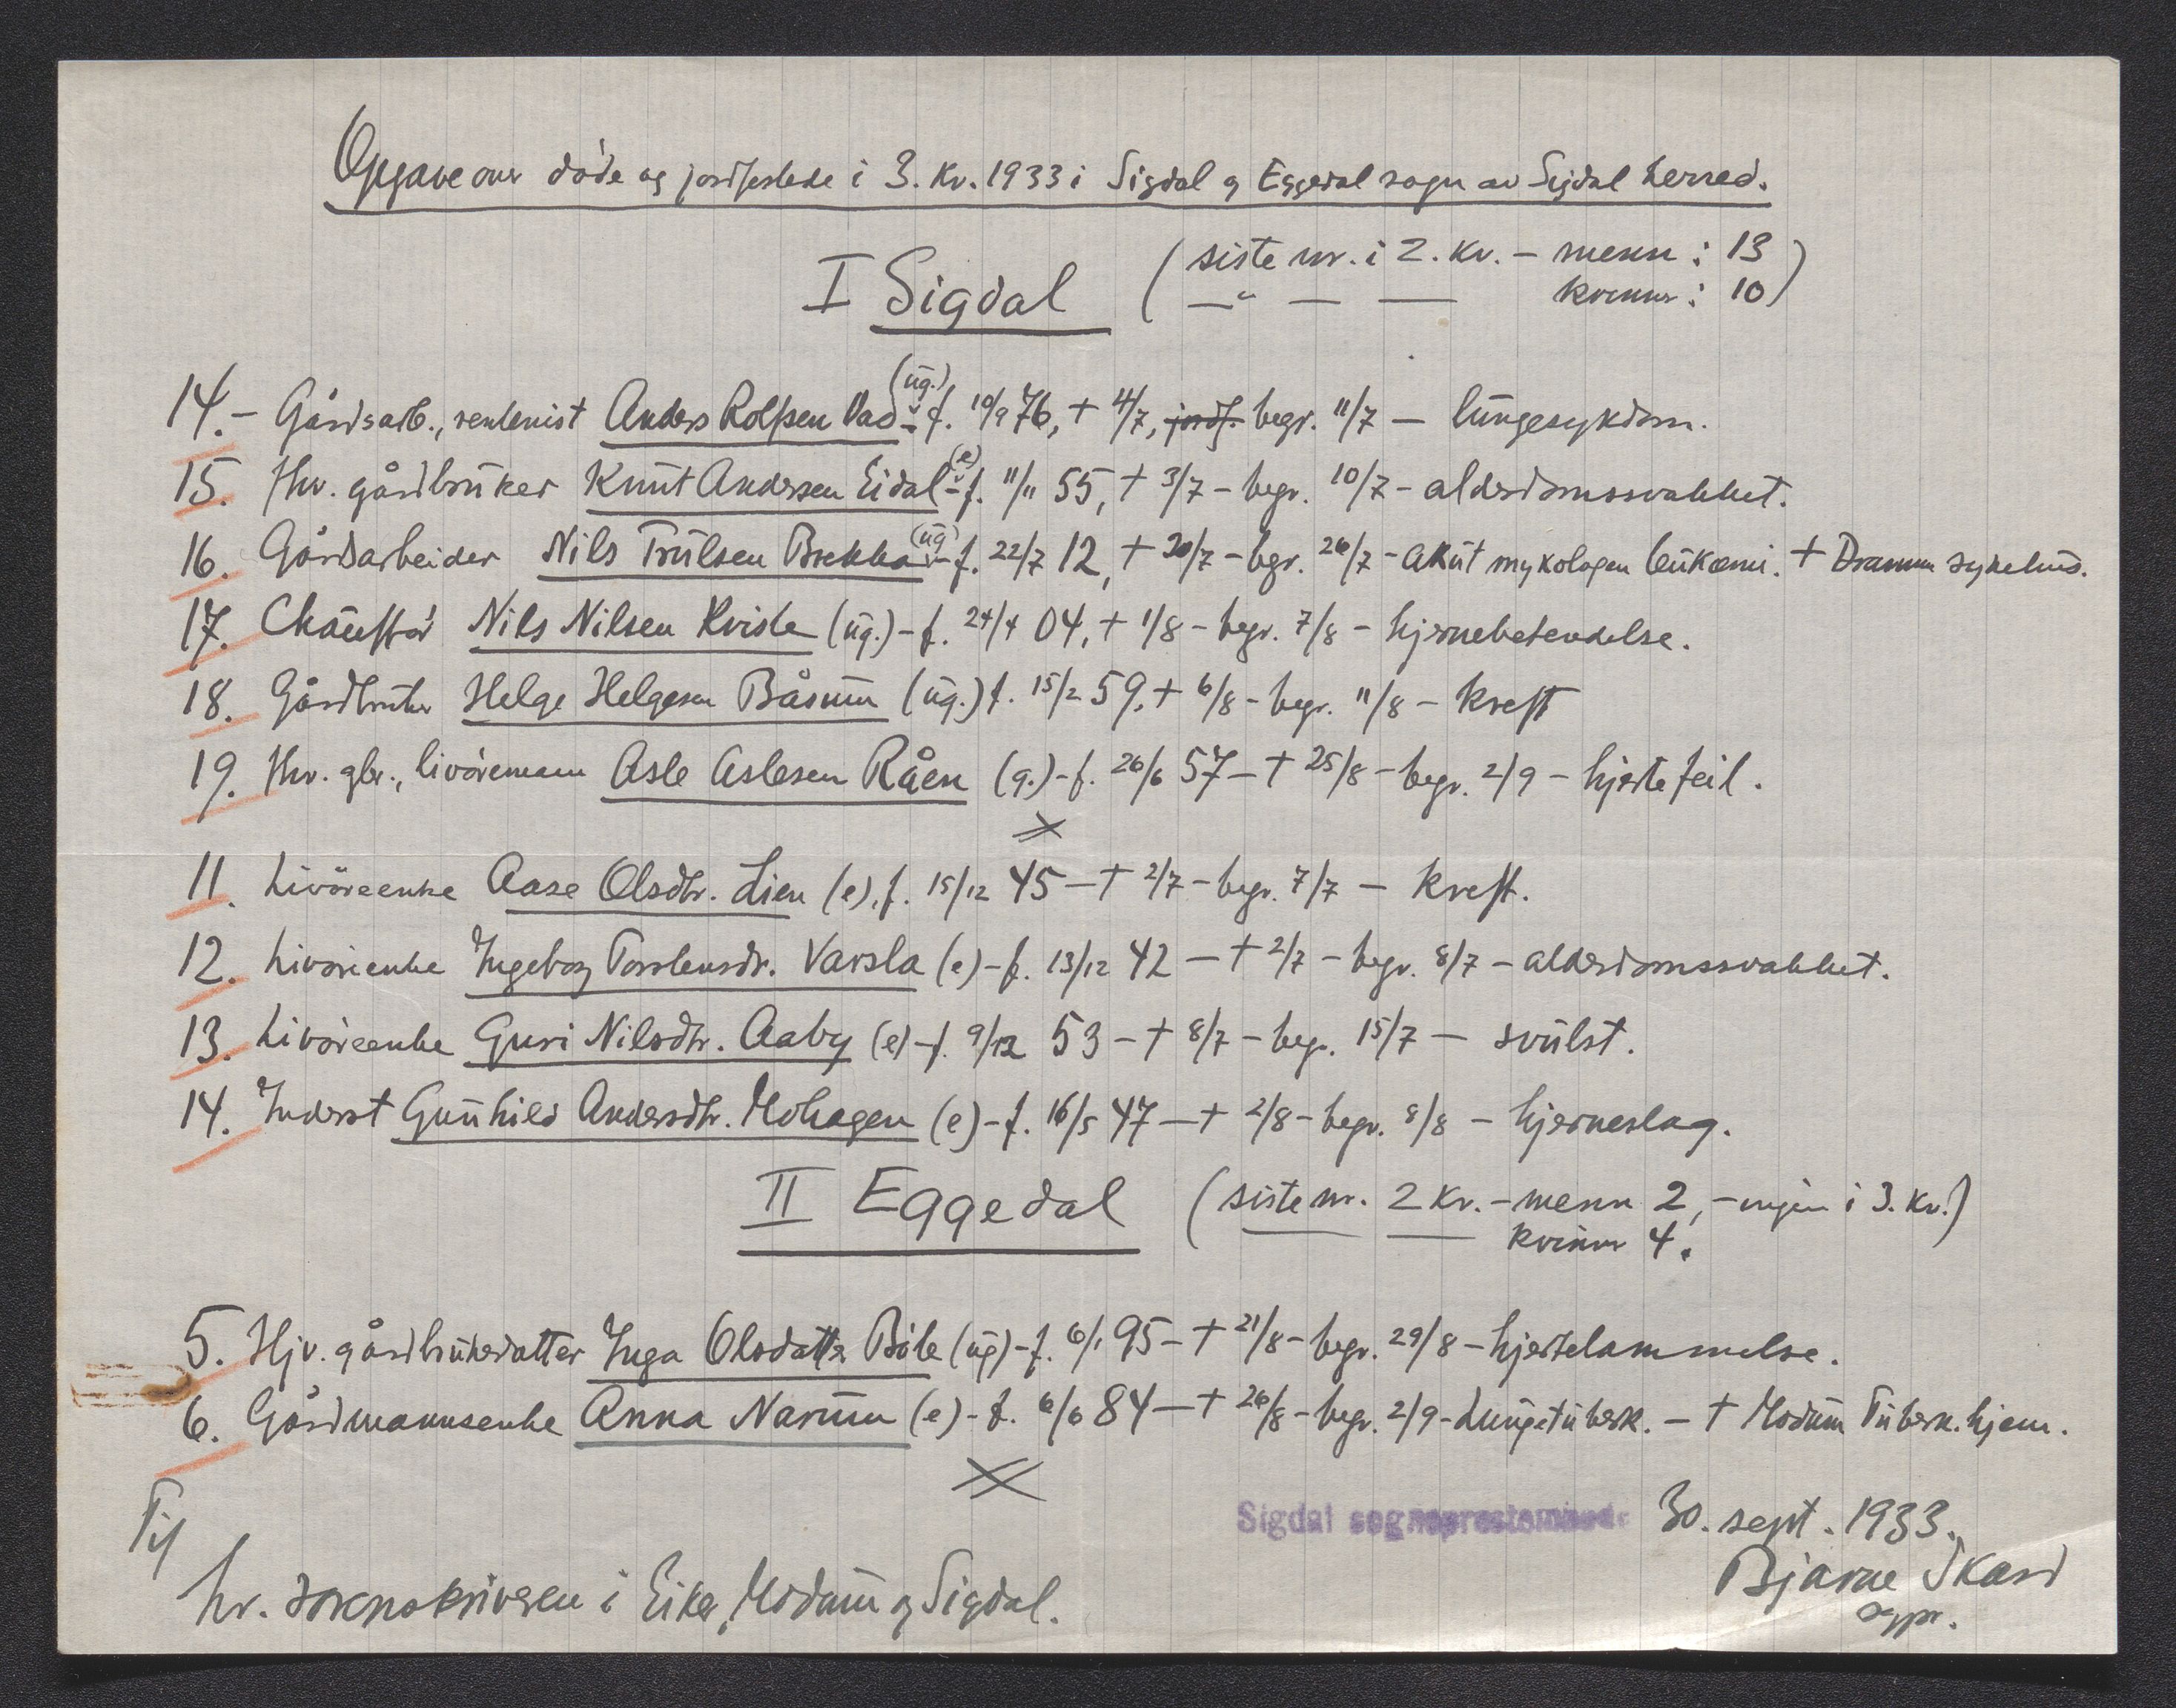 Opgave over døde og jordfestede i 3. kv. 1933 i Sigdal og Eggedal sogn av Sigdal herred.
I Sigdal (siste nr. i 2. kv. – menn : 13
—"— — kvinner : 10)
14. – Gårdsarb., rentenist Anders Rolfsen Vad (ug.) – f. 10/9 76, + 4/7, jordf. begr. 11/7 – lungesykdom.
15. Fhv. gårdbruker Knut Andersen Eidal (e) – f. 11/11 55, + 3/7 – begr. 10/7 – alderdomssvakhet.
16. Gårdsarbeider Nils Trulsen Brekka (ug) – f. 22/7 12, + 20/7 – begr. 26/7 – akut mykologen leukæmi. + Dramm sykehus.
17. Chauffør Nils Nilsen Kviste (ug.) – f. 24/4 04, + 1/8 – begr. 7/8 – hjernebetendelse.
18. Gårdbruker Helge Helgesen Båsum (ug.) f. 15/2 59, + 6/8 – begr. 11/8 – kreft
19. Fhv. gbr., livøremann Asle Aslesen Råen (g.) – f. 26/6 57 – + 25/8 – begr. 2/9 – hjertefeil.
11. Livøreenke Aase Olsdtr. Lien (e), f. 15/12 45 – + 2/7 – begr. 7/7 – kreft.
12. Livøreenke Ingeborg Torstensdr. Varsla (e) – f. 13/12 42 – + 2/7 – begr. 8/7 – alderdomssvakhet.
13. Livøreenke Guri Nilsdtr. Aaby (e) – f. 9/12 53 – + 8/7 – begr. 15/7 – svulst.
14. Inderst Gunhild Andersdtr. Mohagen (e) – f. 16/5 47 – + 2/8 – begr. 8/8 – hjerneslag.
II Eggedal (siste nr. 2 kv. – menn 2, – ingen i 3. kv.)
kvinner 4.
5. Hjv. gårdbrukerdatter Inga Olsdatter Bøle (ug) – f. 6/1 95 – + 21/8 – begr. 29/8 – hjertelammelse.
6. Gårdmannsenke Anna Narum (e) – f. 6/6 84 – + 26/8 – begr. 2/9 – Lungetuberk. – + Modum Tuberk. hjem.
Sigdal sogneprestembede 30. sept. 1933.
Til
Bjarne Skard
sogpr.
hr. sorenskriveren i Eiker, Modum og Sigdal.